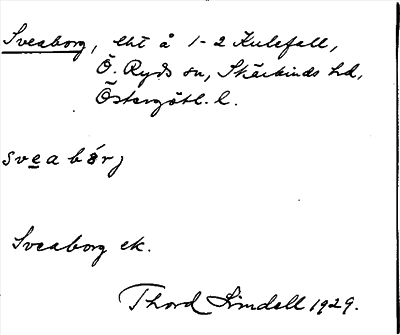 Sveaborg, lht å 1-2 Kulefall,
Ö. Ryds sn, Skärkinds hd,
Östergötl. l.
sveabórj
Sveaborg ek.
Thord Lindell 1929.